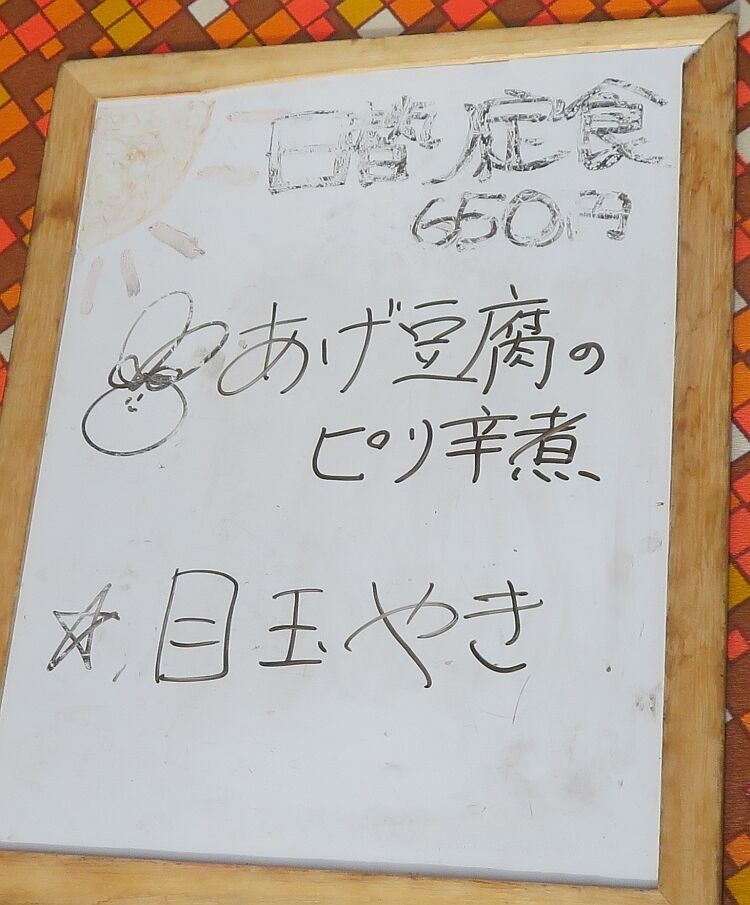 日替り定食
650円
あげ豆腐の
ピリ辛煮
☆目玉やき